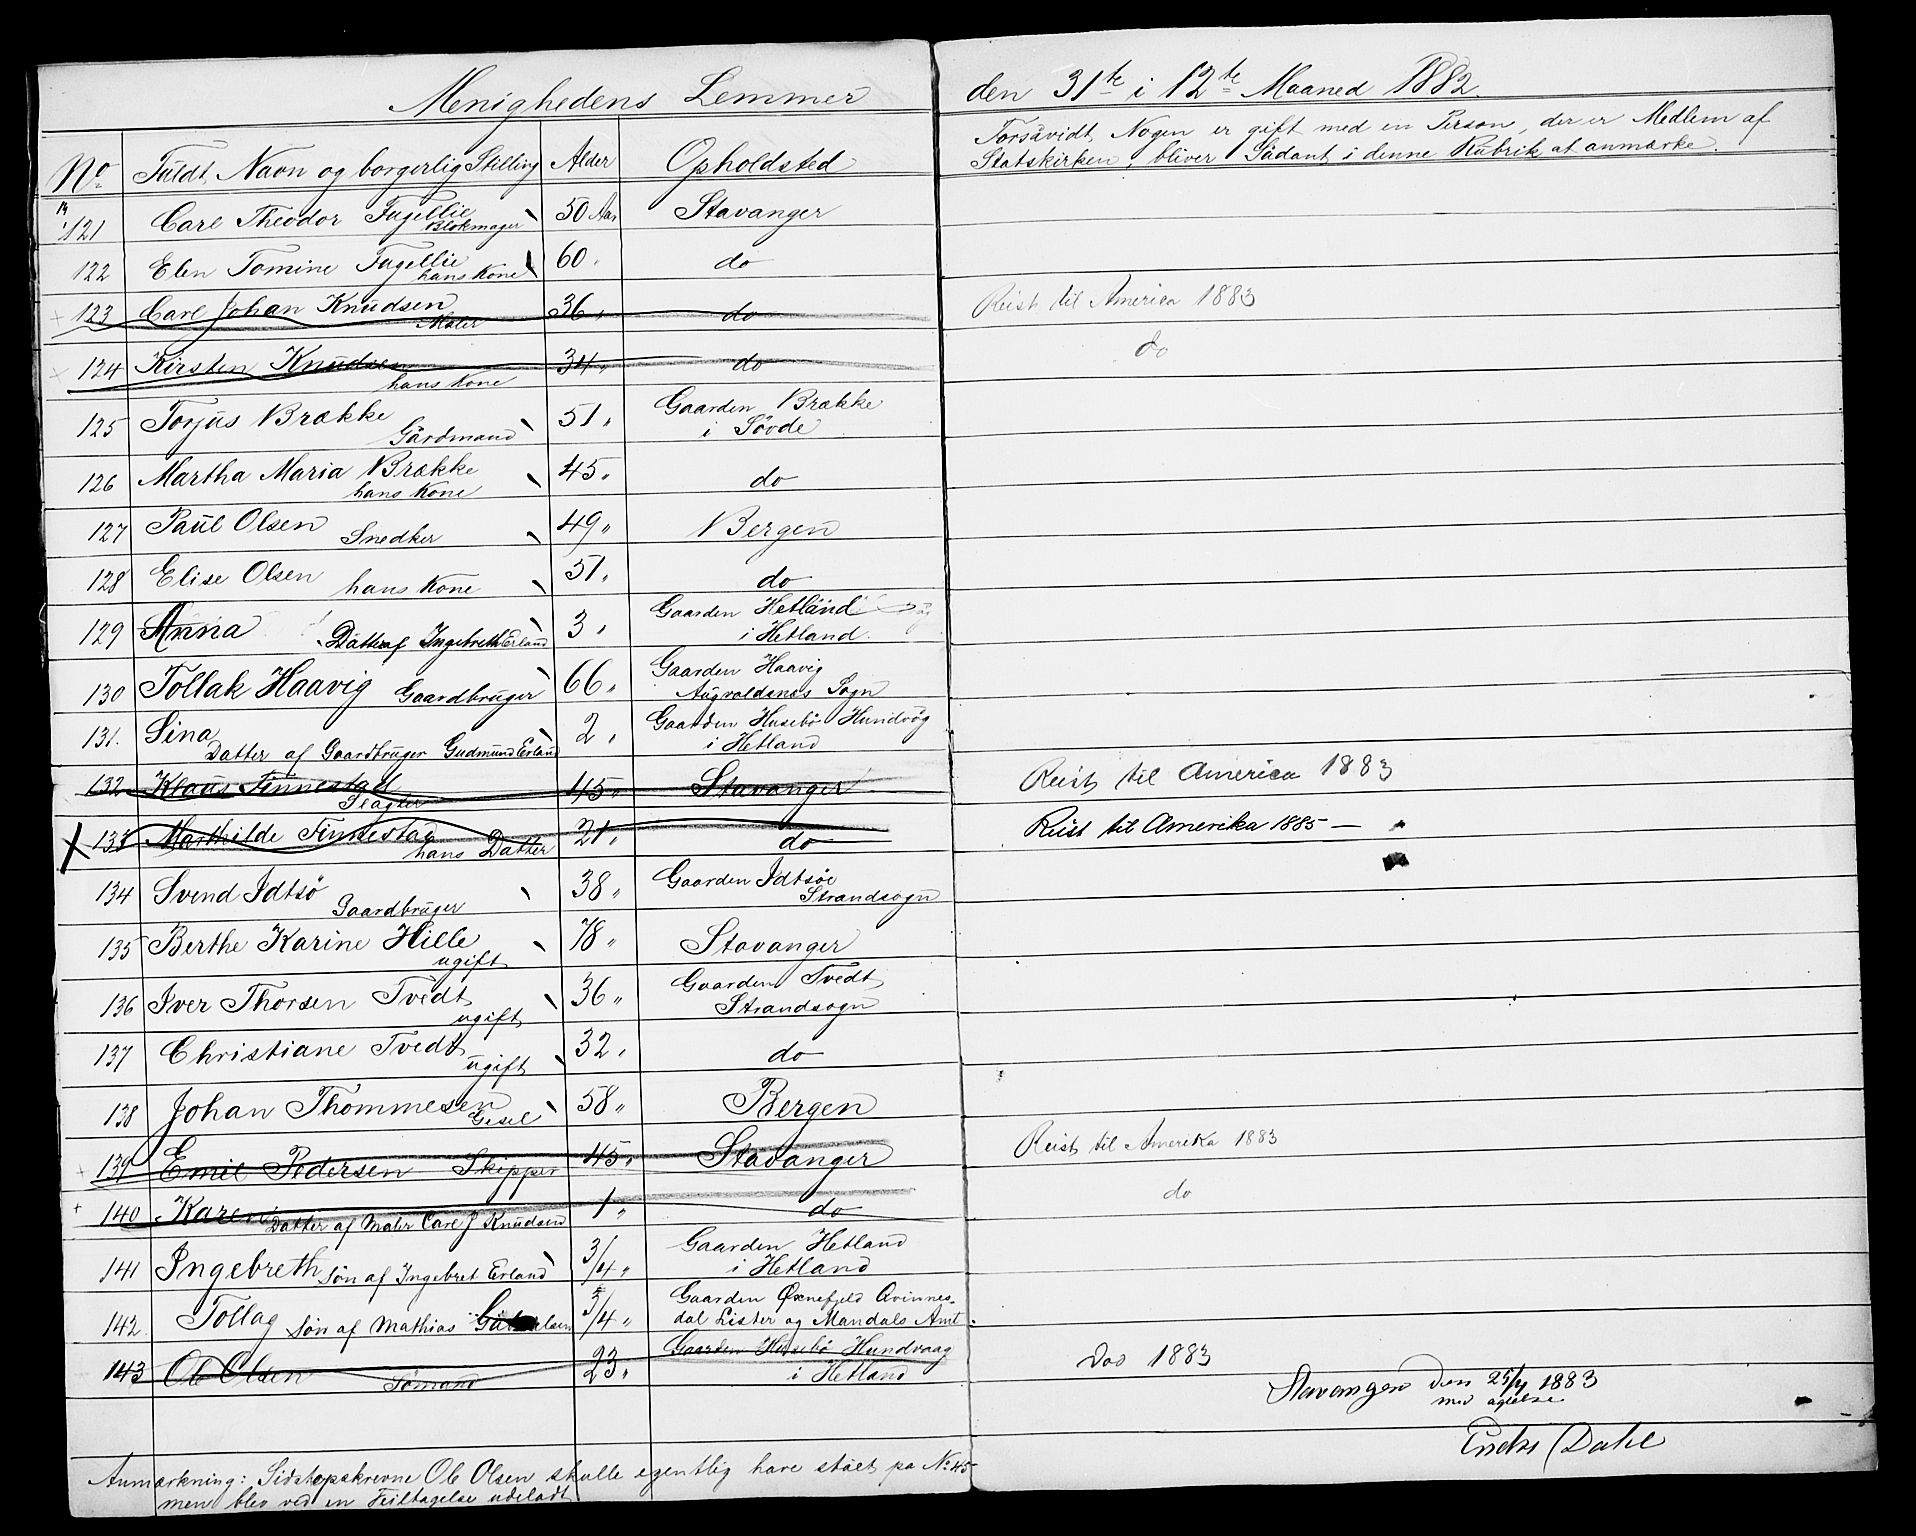 Menighedens Lemmer den 31te i 12te Maaned 1882.
No Fuldt Navn og borgerlig Stilling Alder Opholdsted
Forsåvidt Nogen er gift med en Person, der er Medlem af
Statskirken, bliver Sådant i denne Rubrik at anmærke
121 Carl Theodor Fugellie Blokmager 50 Aar Stavanger
122 Elen Tomine Fugellie hans Kone 60 do
123 Carl Johan Knudsen Maler 36 " do Reist til America 1883
124 Kirsten Knudsen hans Kone 34 " do do
125 Torjus Brække Gårdmand 51 " Gaarden Brække
i Søvde
126 Martha Maria Brække hans Kone 45 " do
127 Paul Olsen Snedker 49 " Bergen
128 Elise Olsen hans Kone 51 " do
129 Anna Datter af Ingebreth Erland 3 " Gaarden Hetland
i Hetland
130 Tollak Haavig Gaardbruger 66 " Gaarden Haavig
Augvaldsnes Sogn
131. Sina 2 " Gaarden Husebö Hundvög
Datter af Gaardbruger Gudmund Erland i Hetland
132 Klaus Finnestad Slagter 45 " Stavanger Reist til America 1883
133 Marthilde Finnestad hans Datter 21 " do Reist til Amerika 1885 —
134 Svend Idtsö Gaardbruger 38 " Gaarden Idtsöe
Strandsogn
135 Berthe Karine Hille ugift 78 " Stavanger
136 Iver Thorsen Tvedt ugift 36 " Gaarden Tvedt
Strandsogn
137 Christiane Tvedt ugift 32 " do
138 Johan Thommesen Gesel 58 " Bergen
139 Emil Pedersen Skipper 45 " Stavanger Reist til Amerika 1883
140 Karen Datter af Maler Carl J Knudsen 1 " do do
141 Ingebreth Søn af Ingebret Erland 3/4 " Gaarden Hetland
i Hetland
142. Tollag Søn af Mathias 3/4 " Gaarden Øxnefjeld Qvinnes-
dal Lister og Mandals Amt.
143 Ole Olsen Sömand 23 " Gaarden Husebö Hundvaag
i Hetland
Död 1883
Stavanger den 25/4 1883
med agtelse
Endre Dahl
Anmærkning: Sidstopskrevne Ole Olsen skulle egentlig have stået på No 45
men blev ved en Feiltagelse udeladt